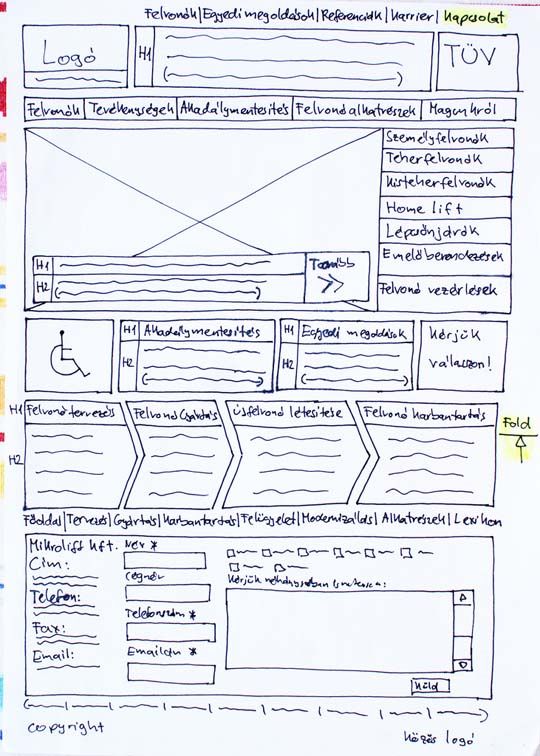 Felvonók | Egyedi megoldások | Referenciák | Karrier | Kapcsolat
Logó
H1
TÜV
Felvonók | Tevékenységek | Akadálymentesítés | Felvonóalkatrészek | Magunkról
Személyfelvonók
Teherfelvonók
Kisteherfelvonók
Home lift
Lépcsőnjárók
Emelőberendezések
Felvonó vezérlések
H1
H2
Tovább
H1 Akadálymentesítés
H2
H1 Egyedi megoldások
H2
Kérjük
válasszon!
H1 Felvonótervezés
Felvonó Gyártás
Újfelvonó létesítése
Felvonó Karbantartás
H2
Fold
Főoldal | Tervezés | Gyártás | Karbantartás | Felügyelet | Modernizálás | Alkatrészek | Lexikon
Mikrolift Kft.
Cím:
Telefon:
Fax:
Email:
Név *
Cégnév
Telefonszám *
Emailcím *
Kérjük néhány szóban
Küld
copyright
Közös logó